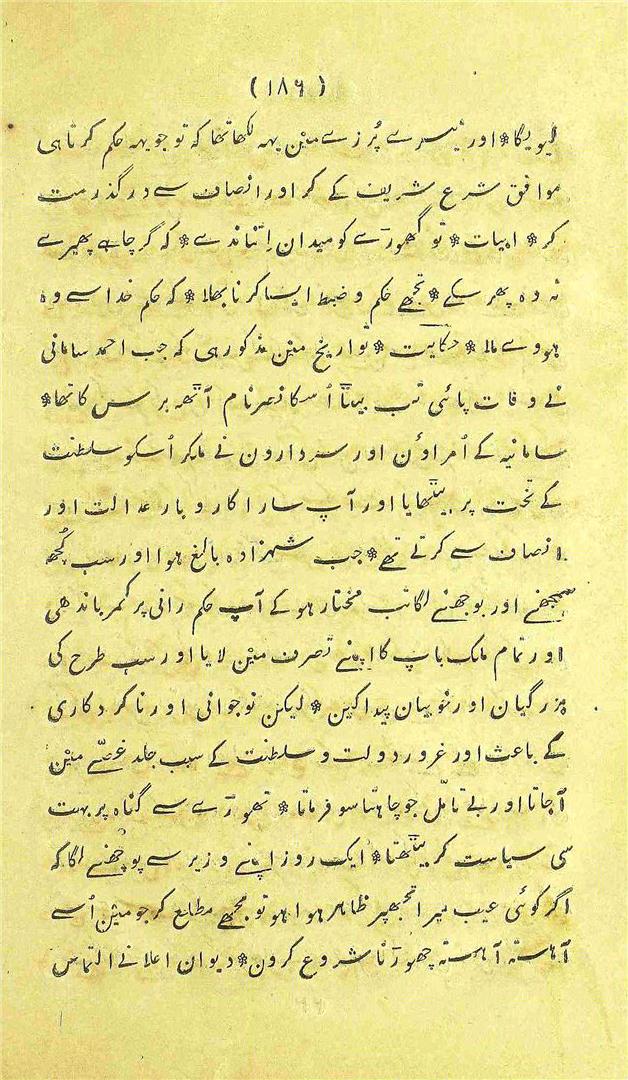 (۱۸۶)
لیویگا * اور تیسرے پُرزے مین یہہ لکھا تھا کہ تو جو یہہ حکم کرتا ہی
موافق شرع شریف کے کر اور انصاف سے درگذر مت
کر * ابیات * تو گھوڑے کو میدان اِتنا ند ے * کہ گر چاہے پھیرے
نہ وہ پھر سکے * تجھے حکم و ضبط ایسا کرنا بھلا * کہ حکم خدا سے وہ
ہووے ملا * حکایت * تواریخ مین مذکور ہی کہ جب احمد سامانی
نے وفات پائی تب بیٹا اُسکا نصر نام آٹھہ برس کا تھا *
سامانیہ کے اُمراؤن اور سردارون نے ملکر اُسکو سلطنت
کے تخت پر بیٹھایا اور آپ سارا کاروبار عدالت اور
انصاف سے کرتے تھے * جب شہزادہ بالغ ہوا اور سب کُچھہ
سمجھنے اور بوجھنے لگا تب مختار ہو کے آپ حکم رانی پر کمر باندھی
اور تمام ملک باپ کا اپنے تصرف مین لایا اور سب طرح کی
بزرگیان اور خوبیان پیدا کین * لیکن نوجوانی اور نا کردکاری
کے باعث اور غرور دولت و سلطنت کے سبب جلد غصّے مین
آجاتا اور بے تامّل جو چاہتا سو فرماتا * تھوڑے سے گناہ پر بہت
سی سیاست کر بیٹھتا * ایک روز اپنے وزیر سے پوچھنے لگا کہ
اگر کوئی عیب میرا تجھپر ظاہر ہوا ہو تو مجھے مطلع کر جو مین اُسے
آہستہ آہستہ چھوڑنا شروع کرون * دیوان اعلا نے التماس